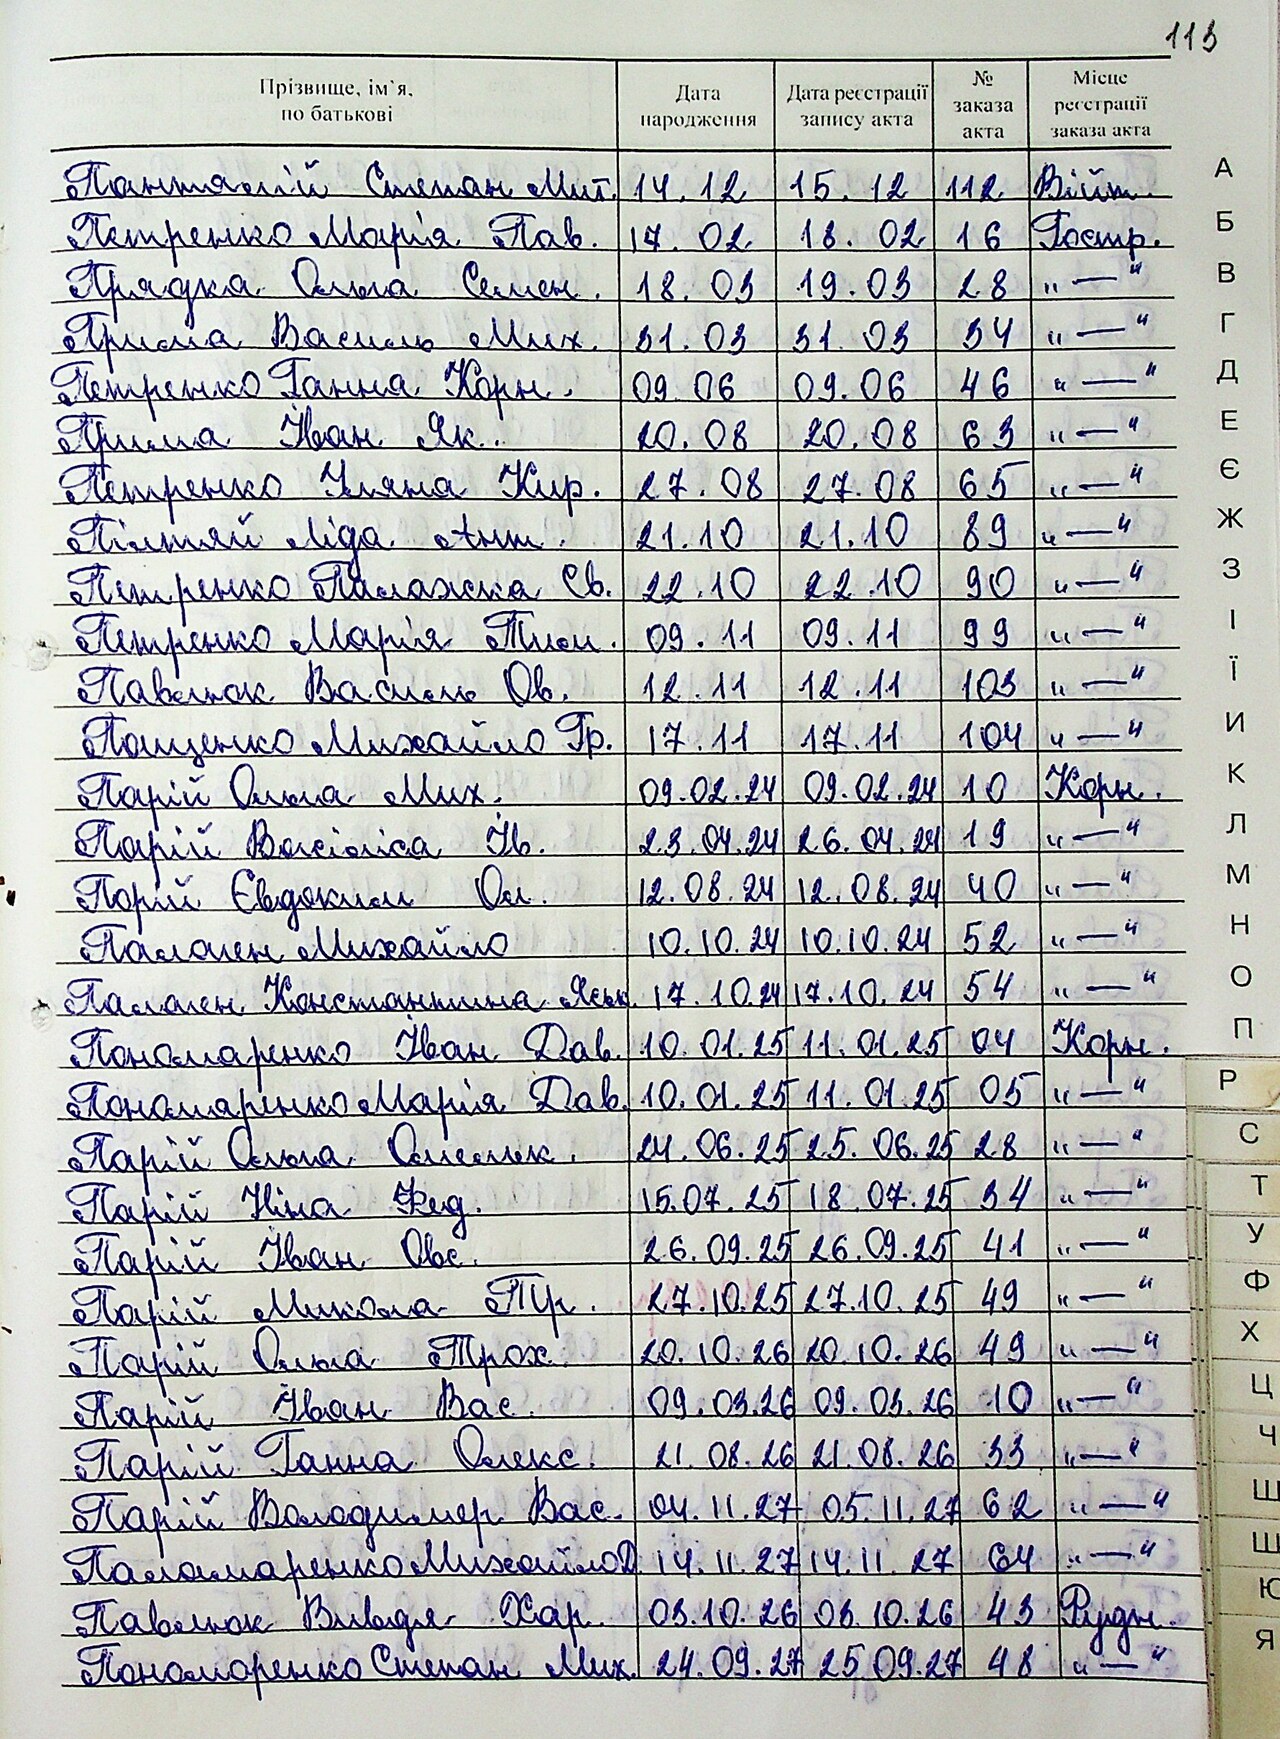 113
Прізвище, ім'я, по батькові Дата народження Дата реєстрації запису акта № заказа акта Місце реєстрації заказа акта
Пантялій Степан Мит. 14.12 15.12 112 Війт.
Петренко Марія Пав. 17.02 18.02 16 Гостр.
Прядка Ольга Семен. 18.03 19.03 28 „—“
Прима Василь Мих. 31.03 31.03 34 „—“
Петренко Ганна Корн. 09.06 09.06 46 „—“
Прима Іван Як. 20.08 20.08 63 „—“
Петренко Уляна Кир. 27.08 27.08 65 „—“
Пілтяй Ліда Ант. 21.10 21.10 89 „—“
Петренко Палажка Єв. 22.10 22.10 90 „—“
Петренко Марія Тим. 09.11 09.11 99 „—“
Павлюк Василь Ов. 12.11 12.11 103 „—“
Пащенко Михайло Гр. 17.11 17.11 104 „—“
Парій Ольга Мих. 09.02.24 09.02.24 10 Корн.
Парій Васіліса Ів. 23.04.24 26.04.24 19 „—“
Парій Євдоким Ол. 12.08.24 12.08.24 40 „—“
Паламен Михайло 10.10.24 10.10.24 52 „—“
Паламен Константина 17.10.24 17.10.24 54 „—“
Пономаренко Іван Дав. 10.01.25 11.01.25 04 Корн.
Пономаренко Марія Дав. 10.01.25 11.01.25 05 „—“
Парій Ольга Омельк. 24.06.25 25.06.25 28 „—“
Парій Ніна Фед. 15.07.25 18.07.25 34 „—“
Парій Іван Овс. 26.09.25 26.09.25 41 „—“
Парій Микола 27.10.25 27.10.25 49 „—“
Парій Ольга Трох. 20.10.26 20.10.26 49 „—“
Парій Іван Вас. 09.03.26 09.03.26 10 „—“
Парій Ганна Олекс. 21.08.26 21.08.26 33 „—“
Парій Володимер Вас. 04.11.27 05.11.27 62 „—“
Паламаренко Михайло Д. 14.11.27 14.11.27 64 „—“
Павлюк Вивдя Хар. 03.10.26 03.10.26 43 Рудн.
Пономоренко Степан Мих. 24.09.27 25.09.27 48 „—“
А
Б
В
Г
Д
Е
Є
Ж
З
І
Ї
И
К
Л
М
Н
О
П
Р
С
Т
У
Ф
Х
Ц
Ч
Ш
Щ
Ю
Я